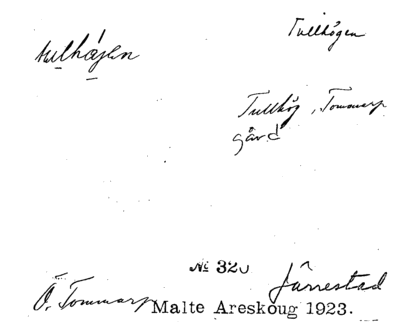 Tullhögen
tulhǻjen
Tullhög, Tommarp
gård
№ 320
Järrestad
Ö. Tommarp
Malte Areskoug 1923.